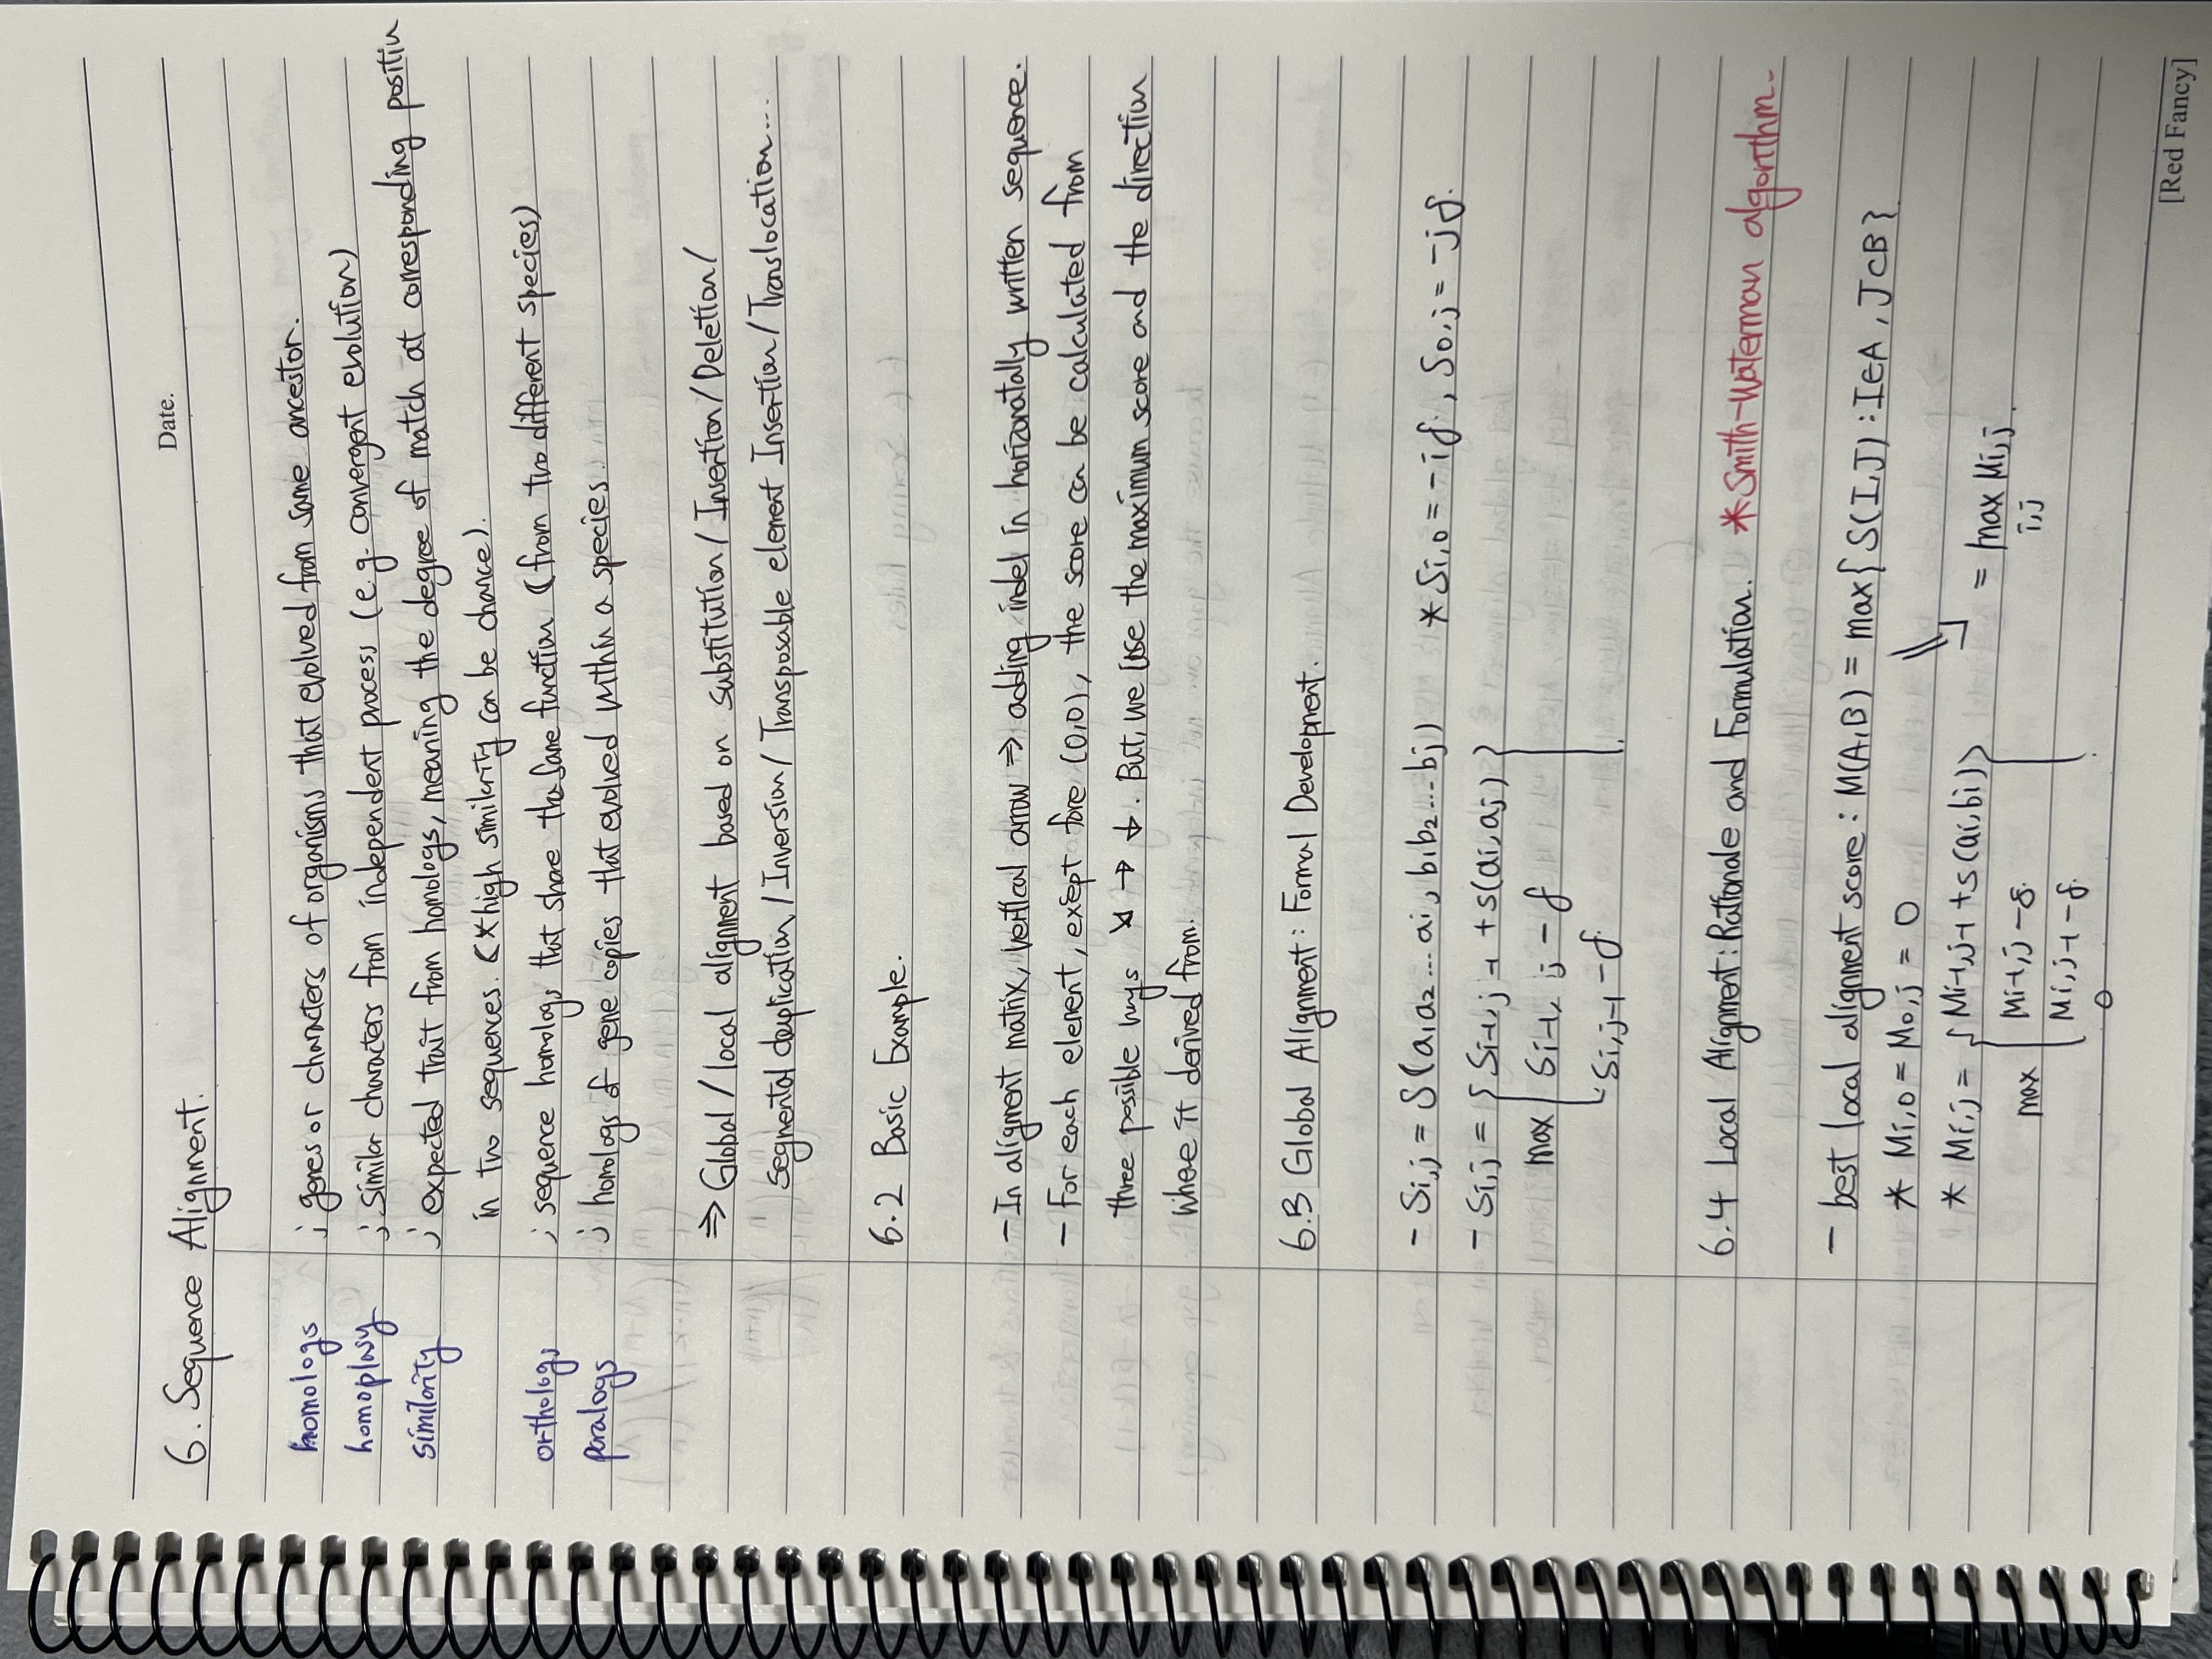 Date.
6. Sequence Alignment.
homologs ; genes or characters of organisms that evolved from same ancestor.
homoplasy ; similar characters from independent process (e.g. convergent evolution)
similarity ; expected trait from homologs, meaning the degree of match at corresponding positiu
in two sequences. (*high similarity can be chance).
orthologs ; sequence homologs that share the same function (from two different species)
paralogs ; homologs of gene copies that evolved within a species.
⇒ Global / local alignment based on substitution / Insertion / Deletion /
Segmental duplication / Inversion / Transposable element Insertion / Translocation...
6.2 Basic Example.
- In alignment matrix, vertical arrow ⇒ adding indel in horizonatally written sequence.
- For each element, exept fore (0,0), the score can be calculated from
three possible ways ↘ → ↓. But, we use the maximum score and the direction
where it derived from.
6.3 Global Alignment: Formal Development.
- Si,j = S(a1a2...ai, b1b2...bj) *Si,0 = -iδ, S0,j = -jδ.
- Si,j = { Si-1,j-1 + s(ai,aj) }
max Si-1,j - δ
Si,j-1 - δ.
6.4 Local Alignment: Rationale and Formulation. *Smith-Waterman algorithm.
- best local alignment score: M(A,B) = max{S(I,J) : I⊂A, J⊂B}
* Mi,0 = M0,j = 0
= max Mi,j.
i,j
* Mi,j = { Mi-1,j-1 + s(ai,bi) }
max Mi-1,j - δ.
Mi,j-1 - δ.
0
[Red Fancy]